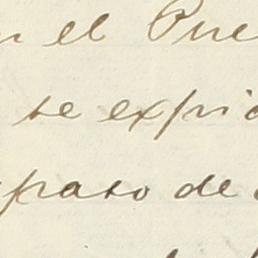 n el Pue
se expid
paso de